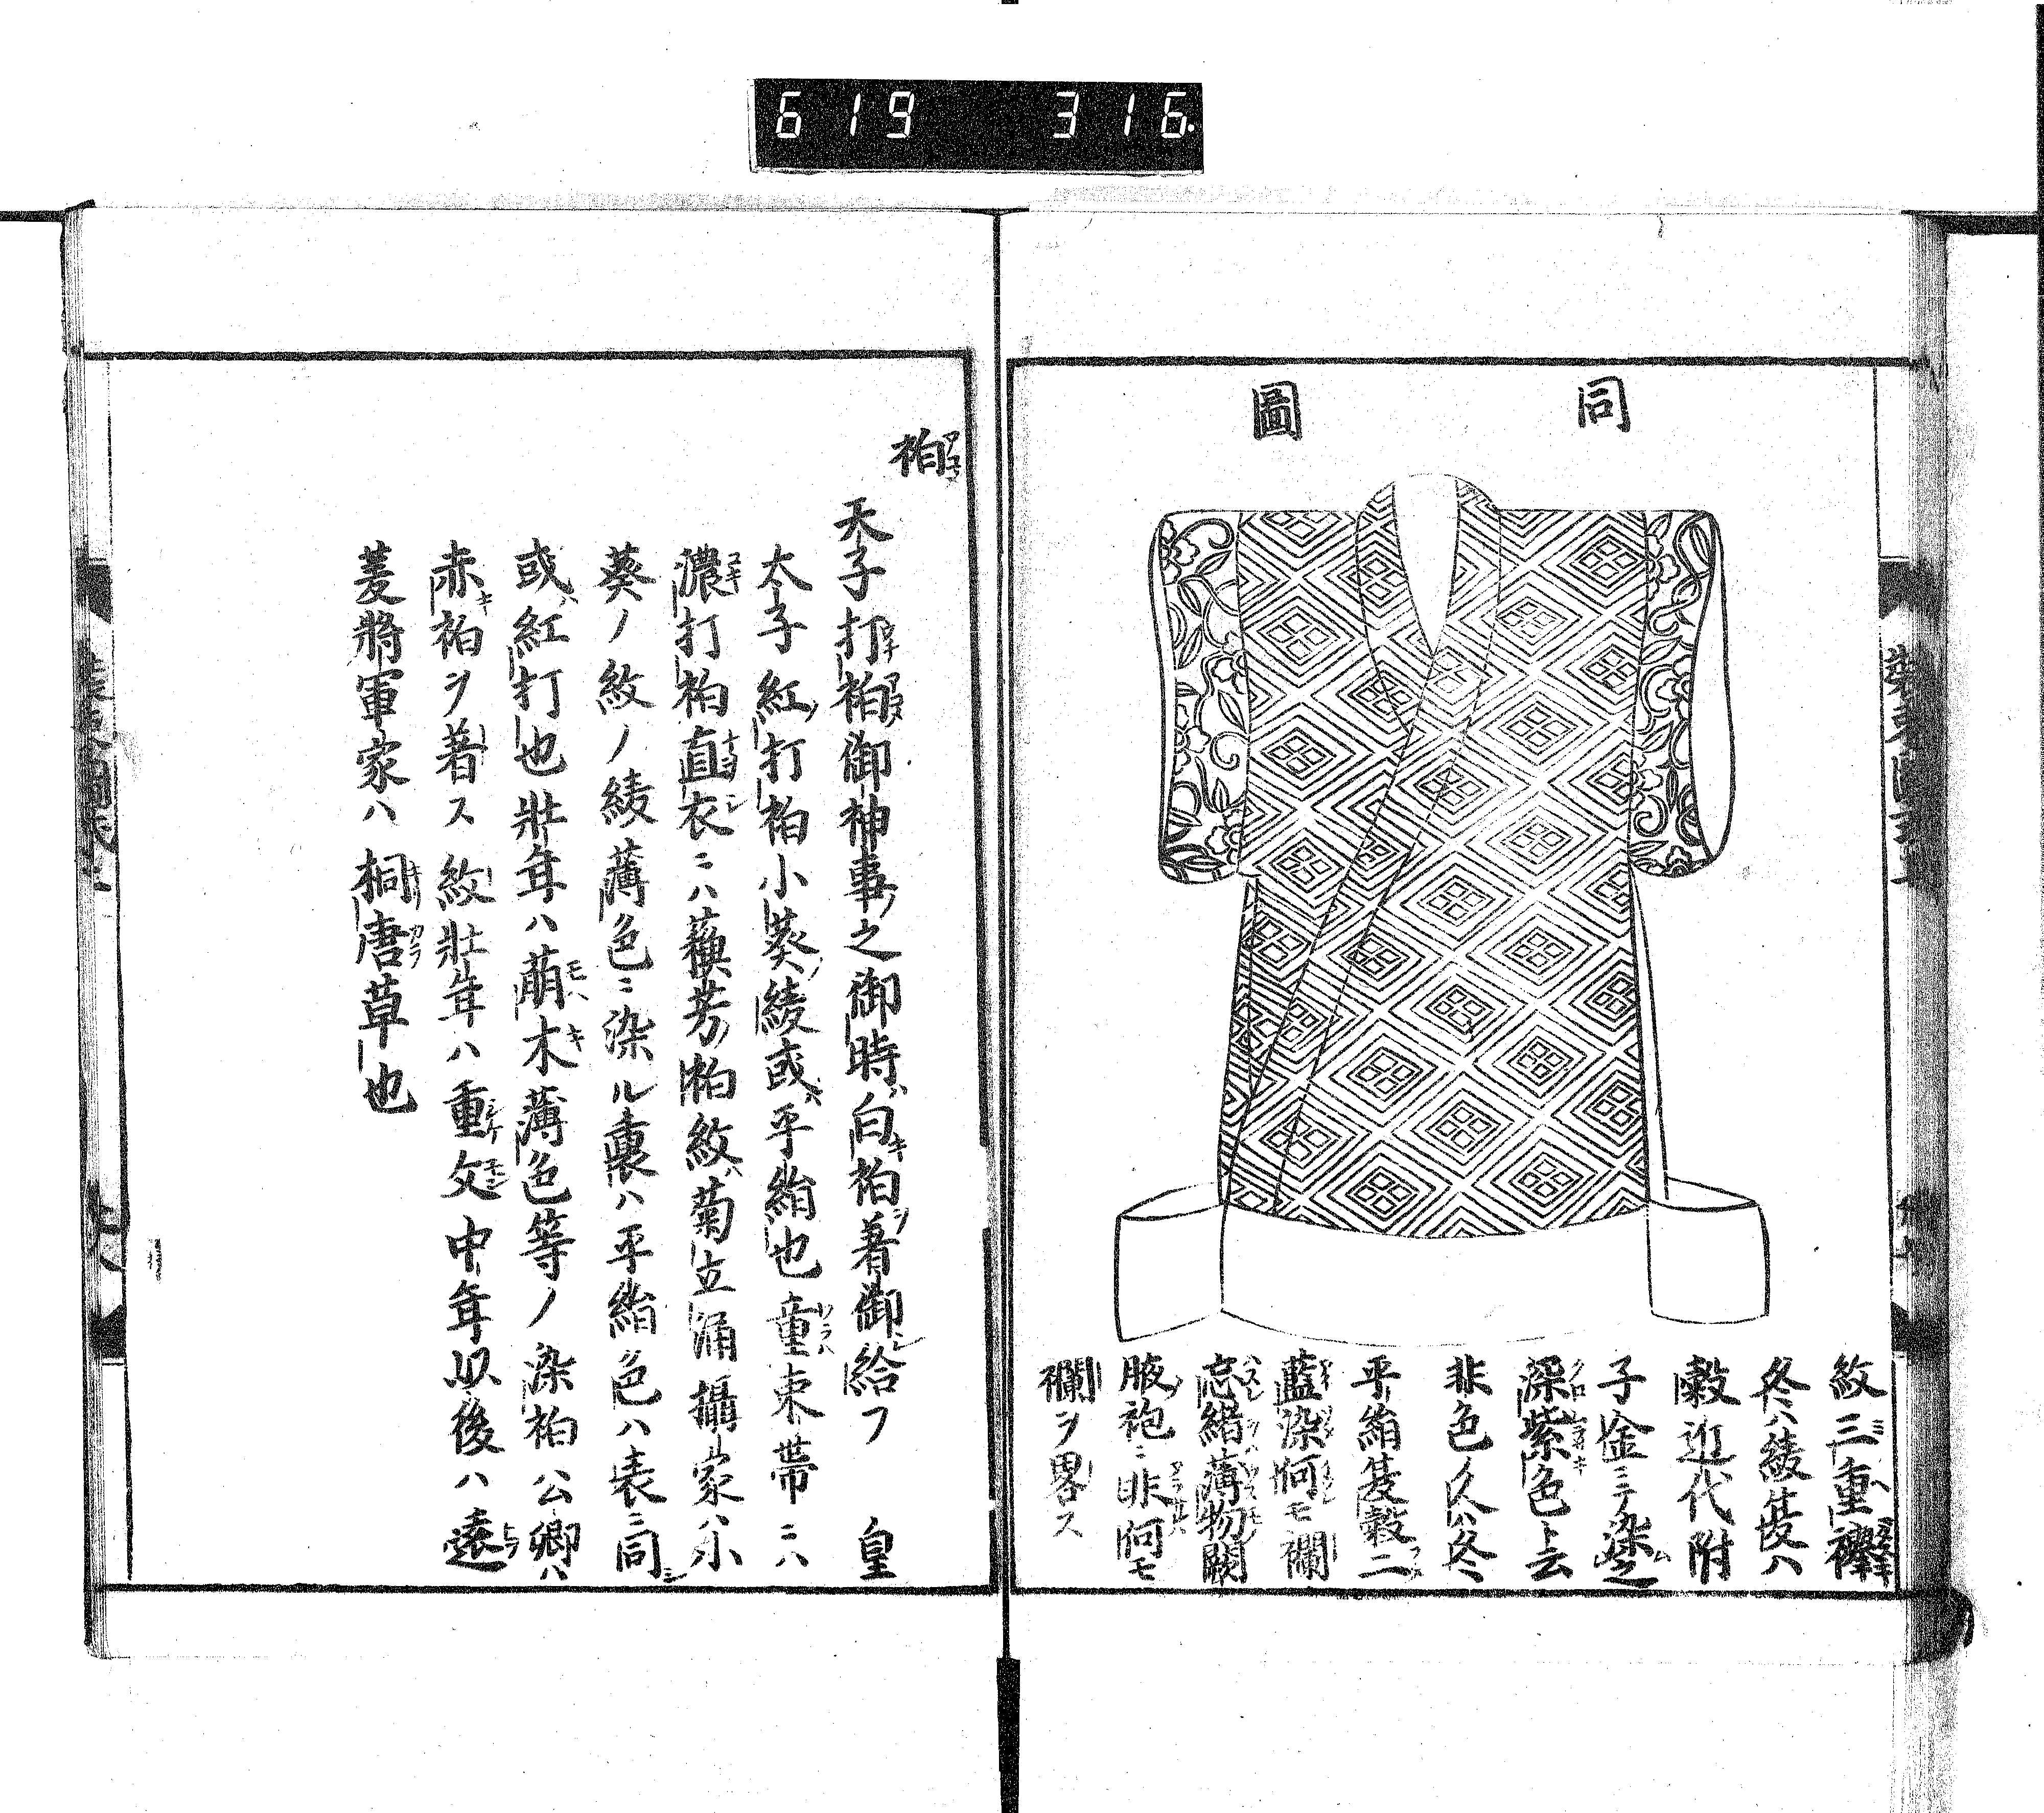 619 316.
同圖
紋三重襷
冬ハ綾夏ハ
縠近代附
子金ニテ染之
深紫色ト云
非色ノ人ハ冬
平絹夏縠二
藍染何モ襴
忘緒薄物闕
腋袍ニ非何モ
襴ヲ畧ス
袙
天子打袙御神事之御時ハ白袙着御シ給フ 皇
太子紅打袙小葵綾或ハ平絹也童束帶ニハ
濃打袙直衣ニハ蘓芳袙紋ハ菊立涌攝家ハ小
葵ノ紋ノ綾薄色ニ染ル裏ハ平絹色ハ表ニ同シ
或ハ紅打也壯年ハ萠木薄色等ノ染袙公卿ハ
赤袙ヲ着ス紋壯年ハ重文中年以後ハ遠
菱將軍家ハ桐唐草也